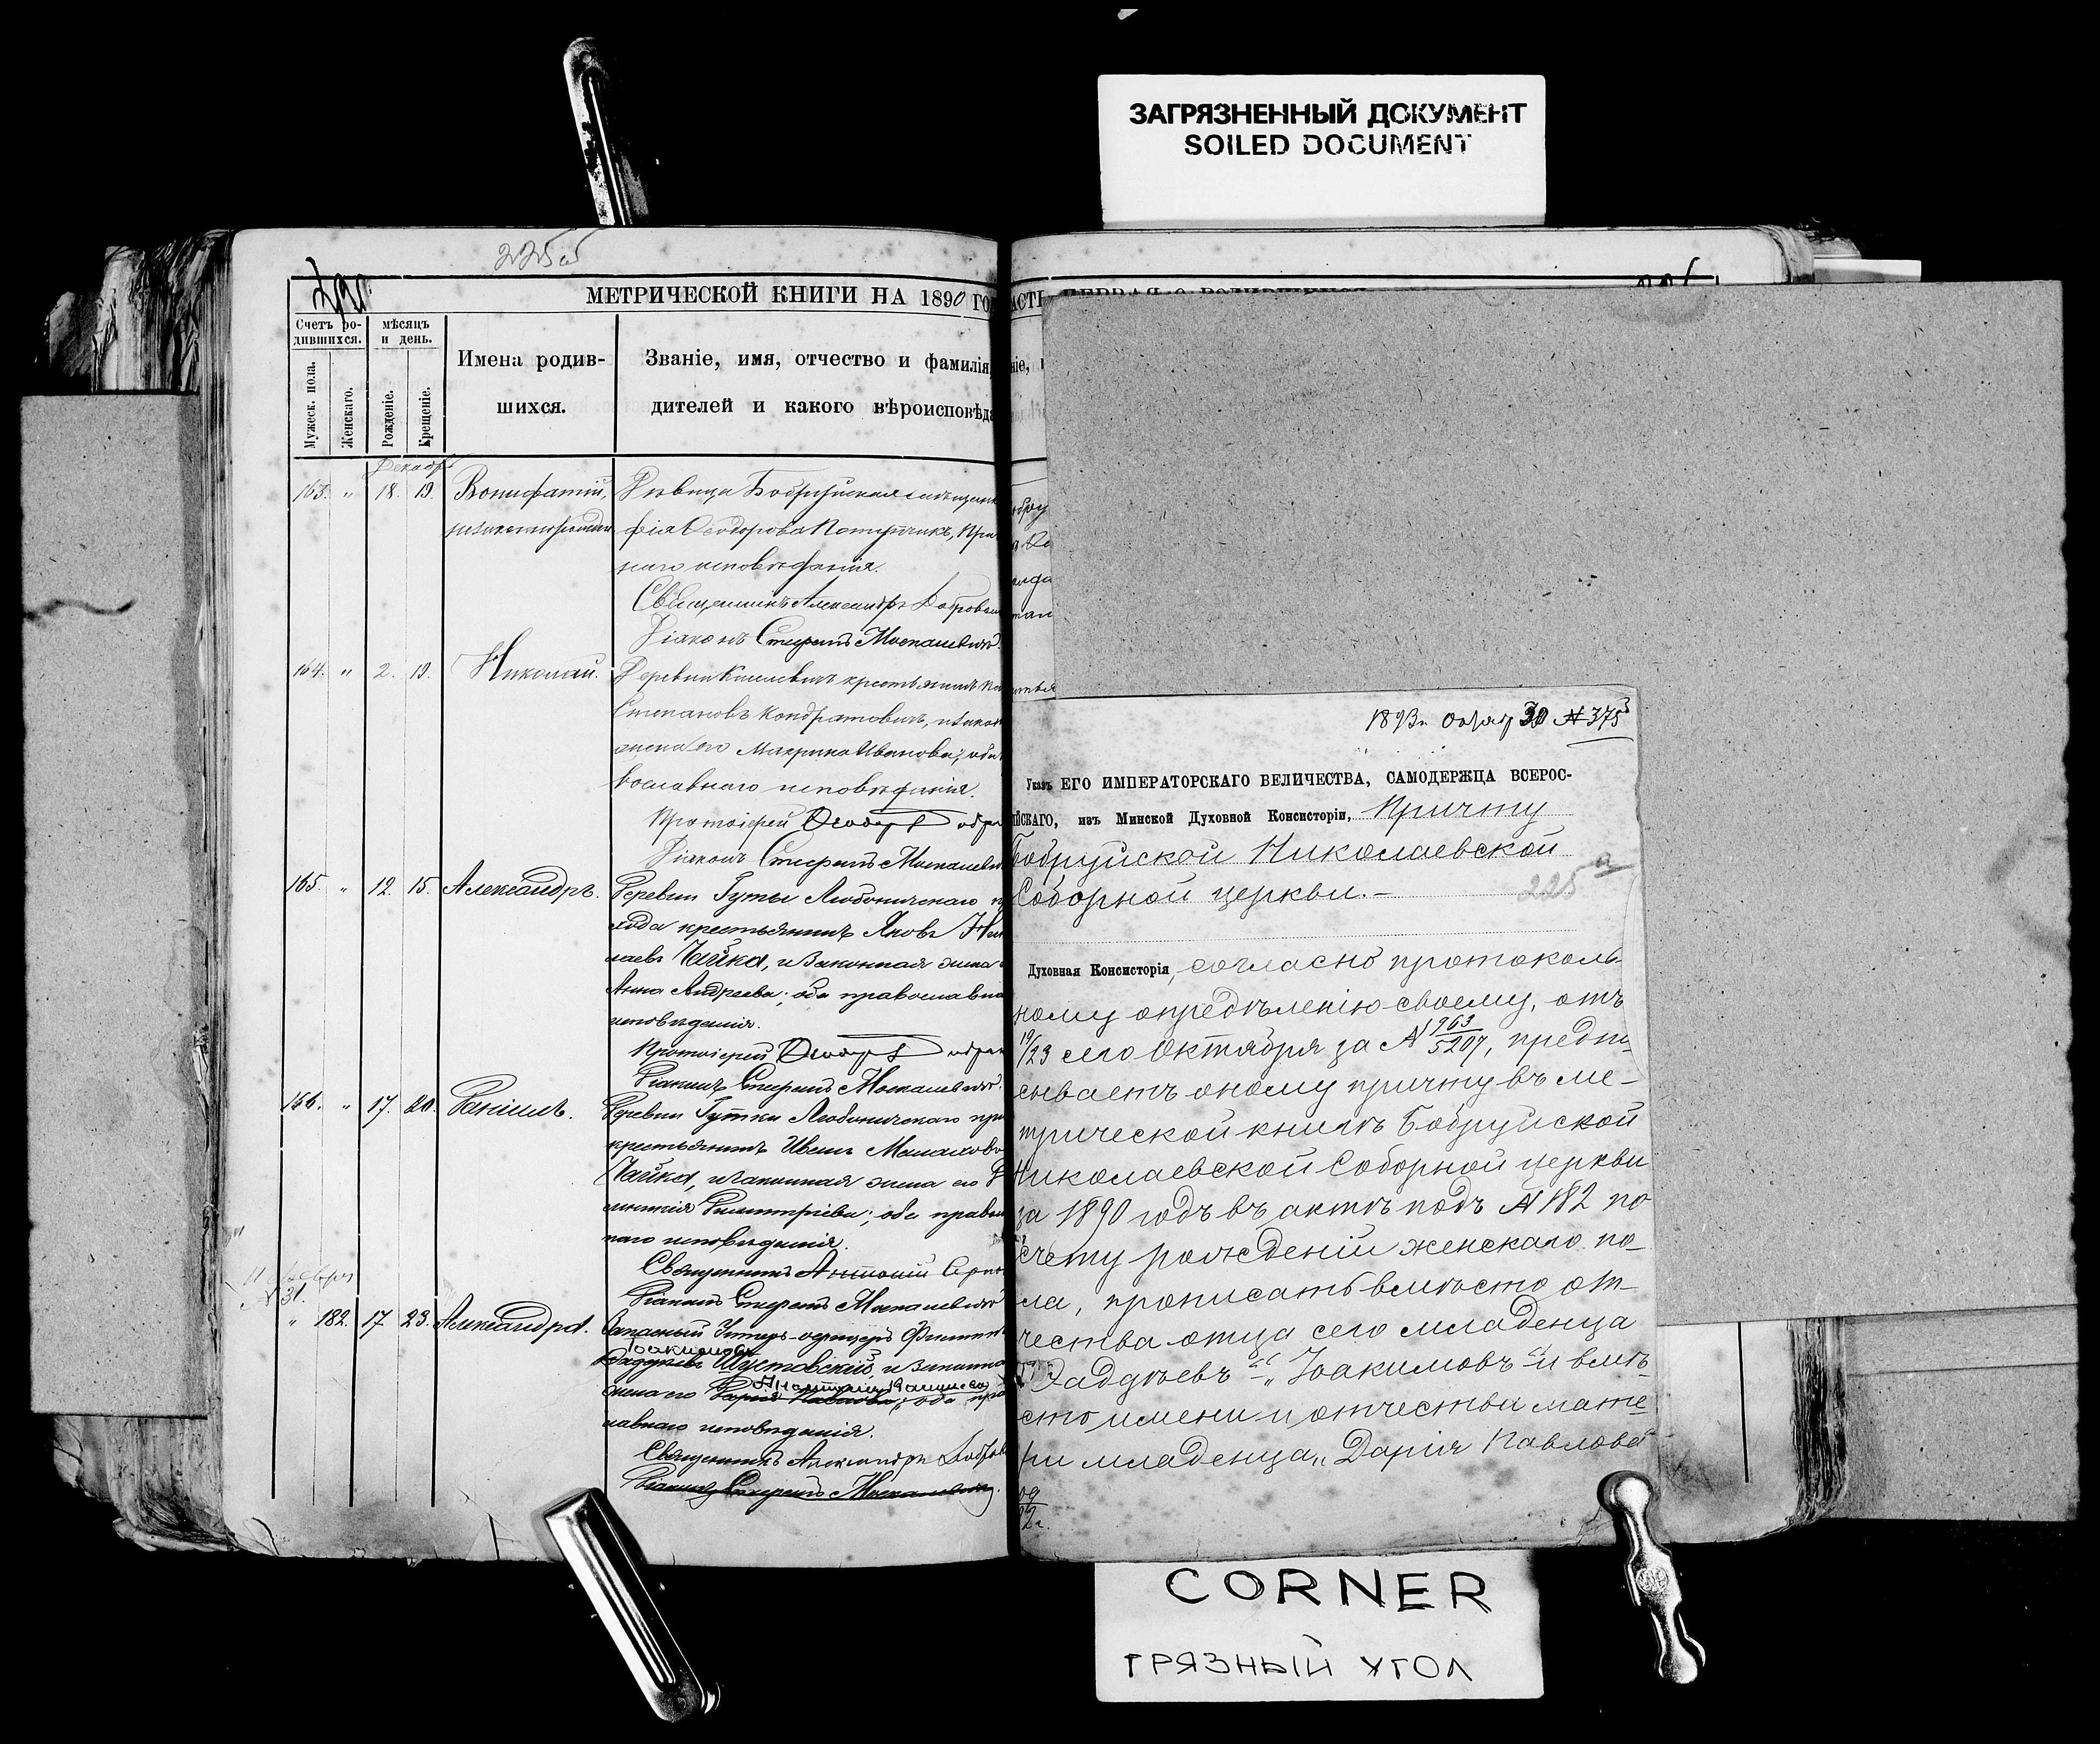 ЗАГРЯЗНЕННЫЙ ДОКУМЕНТ
SOILED DOCUMENT
225б
МЕТРИЧЕСКОЙ КНИГИ НА 1890 ГО
Счетъ ро-
дившихся.
мѣсяцъ
и день.
Мужеск. пола.
Женскаго.
Рожденіе.
Крещеніе.
Имена родив-
шихся.
Званіе, имя, отчество и фамилія
дителей и какого вѣроисповѣда
Декабр
163. " 18. 19. Вонифатій, Дѣвица Бобруйская мѣщанк
незаконнорожден фія Ѳеодорова Потупчикъ, Пра
наго исповѣданія.
Священникъ Александръ Добров
Діаконъ Стефанъ Москалевичъ.
164. " 2. 19. Николай. Деревни Киселевичъ крестьянинъ
Степановъ Кондратовичъ, и закон
жена его Макрина Иванова; оба
вославнаго исповѣданія.
Протоіерей
Діаконъ Стефанъ Москалеви
165. " 12. 15. Александръ. Деревни Гуты Любоничскаго п
хода крестьянинъ Яковъ Ник
лаевъ Чайка, и Законная жена
Анна Андреева; оба православна
исповѣданія.
Протоіерей
Діаконъ Стефанъ Москалевичъ.
166. " 17. 20. Даніилъ. Деревни Гутки Любоничскаго при
крестьянинъ Иванъ Малахово
Чайка, и Законная жена его
Димитріева; оба правос
наго исповѣданія.
Священникъ Антоній
Діаконъ Стефанъ Москалевичъ
№ 31.
" 182. 17 23. Александра. Запасный Унтеръ-офицеръ Филипп
Іоакимовъ
Фаддеевъ Шустовскій, и Законна
жена его Дарія Павлова; оба пра
славнаго исповѣданія.
Священникъ Александръ Добров
Діаконъ Стефанъ Москалевичъ.
1893 г. Октяб 30 № 375
Указъ ЕГО ИМПЕРАТОРСКАГО ВЕЛИЧЕСТВА, САМОДЕРЖЦА ВСЕРОС-
ІЙСКАГО, изъ Минской Духовной Консисторіи, Причту
Бобруйской Николаевской
Соборной церкви.—
225 а
Духовная Консисторія, согласно протоколь-
ному опредѣленію своему, отъ
19/23 сего Октября за № 963/5207, предпи-
сываетъ оному причту въ ме-
трической книгѣ Бобруйской
Николаевской Соборной церкви
за 1890 годъ въ актѣ подъ № 182 по
счету рожденій женскаго по-
ла, прописать вмѣсто от-
чества отца сего младенца
"Фаддѣевъ" – "Іоакимовъ" и вмѣ-
сто имени и отчества мате-
ри младенца "Дарія Павлова"
CORNER
ГРЯЗНЫЙ УГОЛ